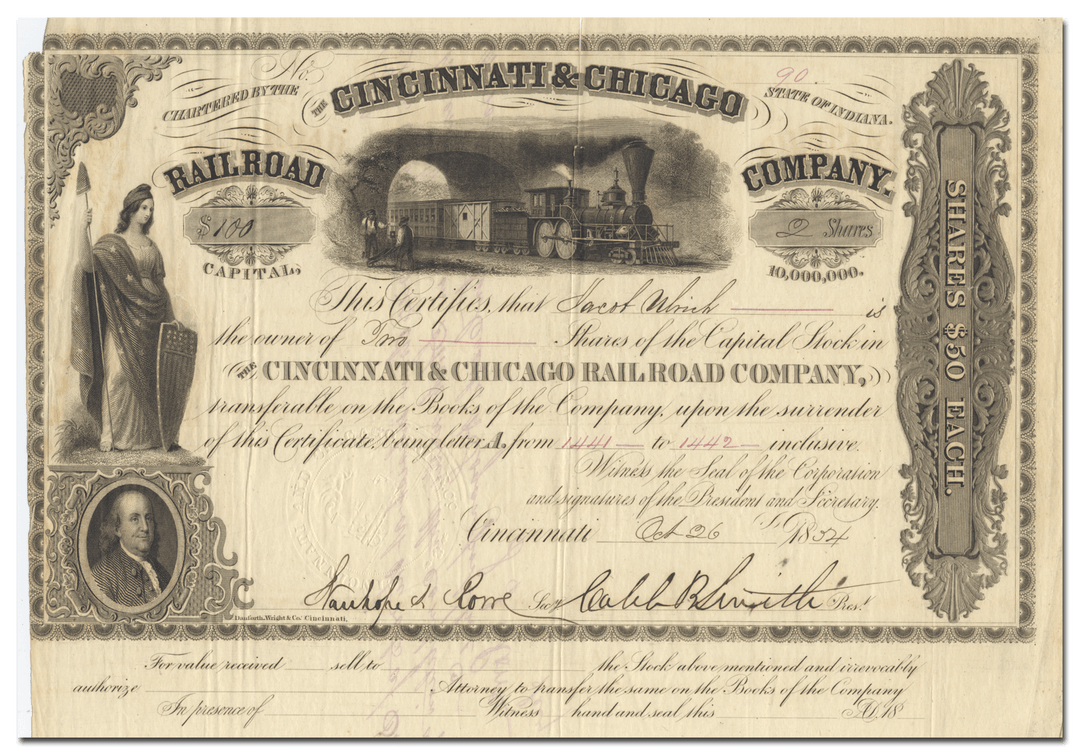 No. 90.
CHARTERED BY THE
THE CINCINNATI & CHICAGO
STATE OF INDIANA.
RAILROAD
COMPANY.
$100
2 Shares
CAPITAL,
10,000,000.
SHARES $50 EACH.
This Certifies, that Jacob Ulrich is
the owner of Two Shares of the Capital Stock in
THE CINCINNATI & CHICAGO RAILROAD COMPANY,
transferable on the Books of the Company, upon the surrender
of this Certificate, being letter A. from 1441 to 1442 inclusive.
Witness the Seal of the Corporation
and signatures of the President and Secretary.
Cincinnati Oct 26 1854
Stanhope S. Rowe Secy. Caleb B Smith Prest.
Danforth, Wright & Co. Cincinnati.
For value received sell to the Stock above mentioned and irrevocably
authorize Attorney to transfer the same on the Books of the Company
In presence of Witness hand and seal this A.D. 18